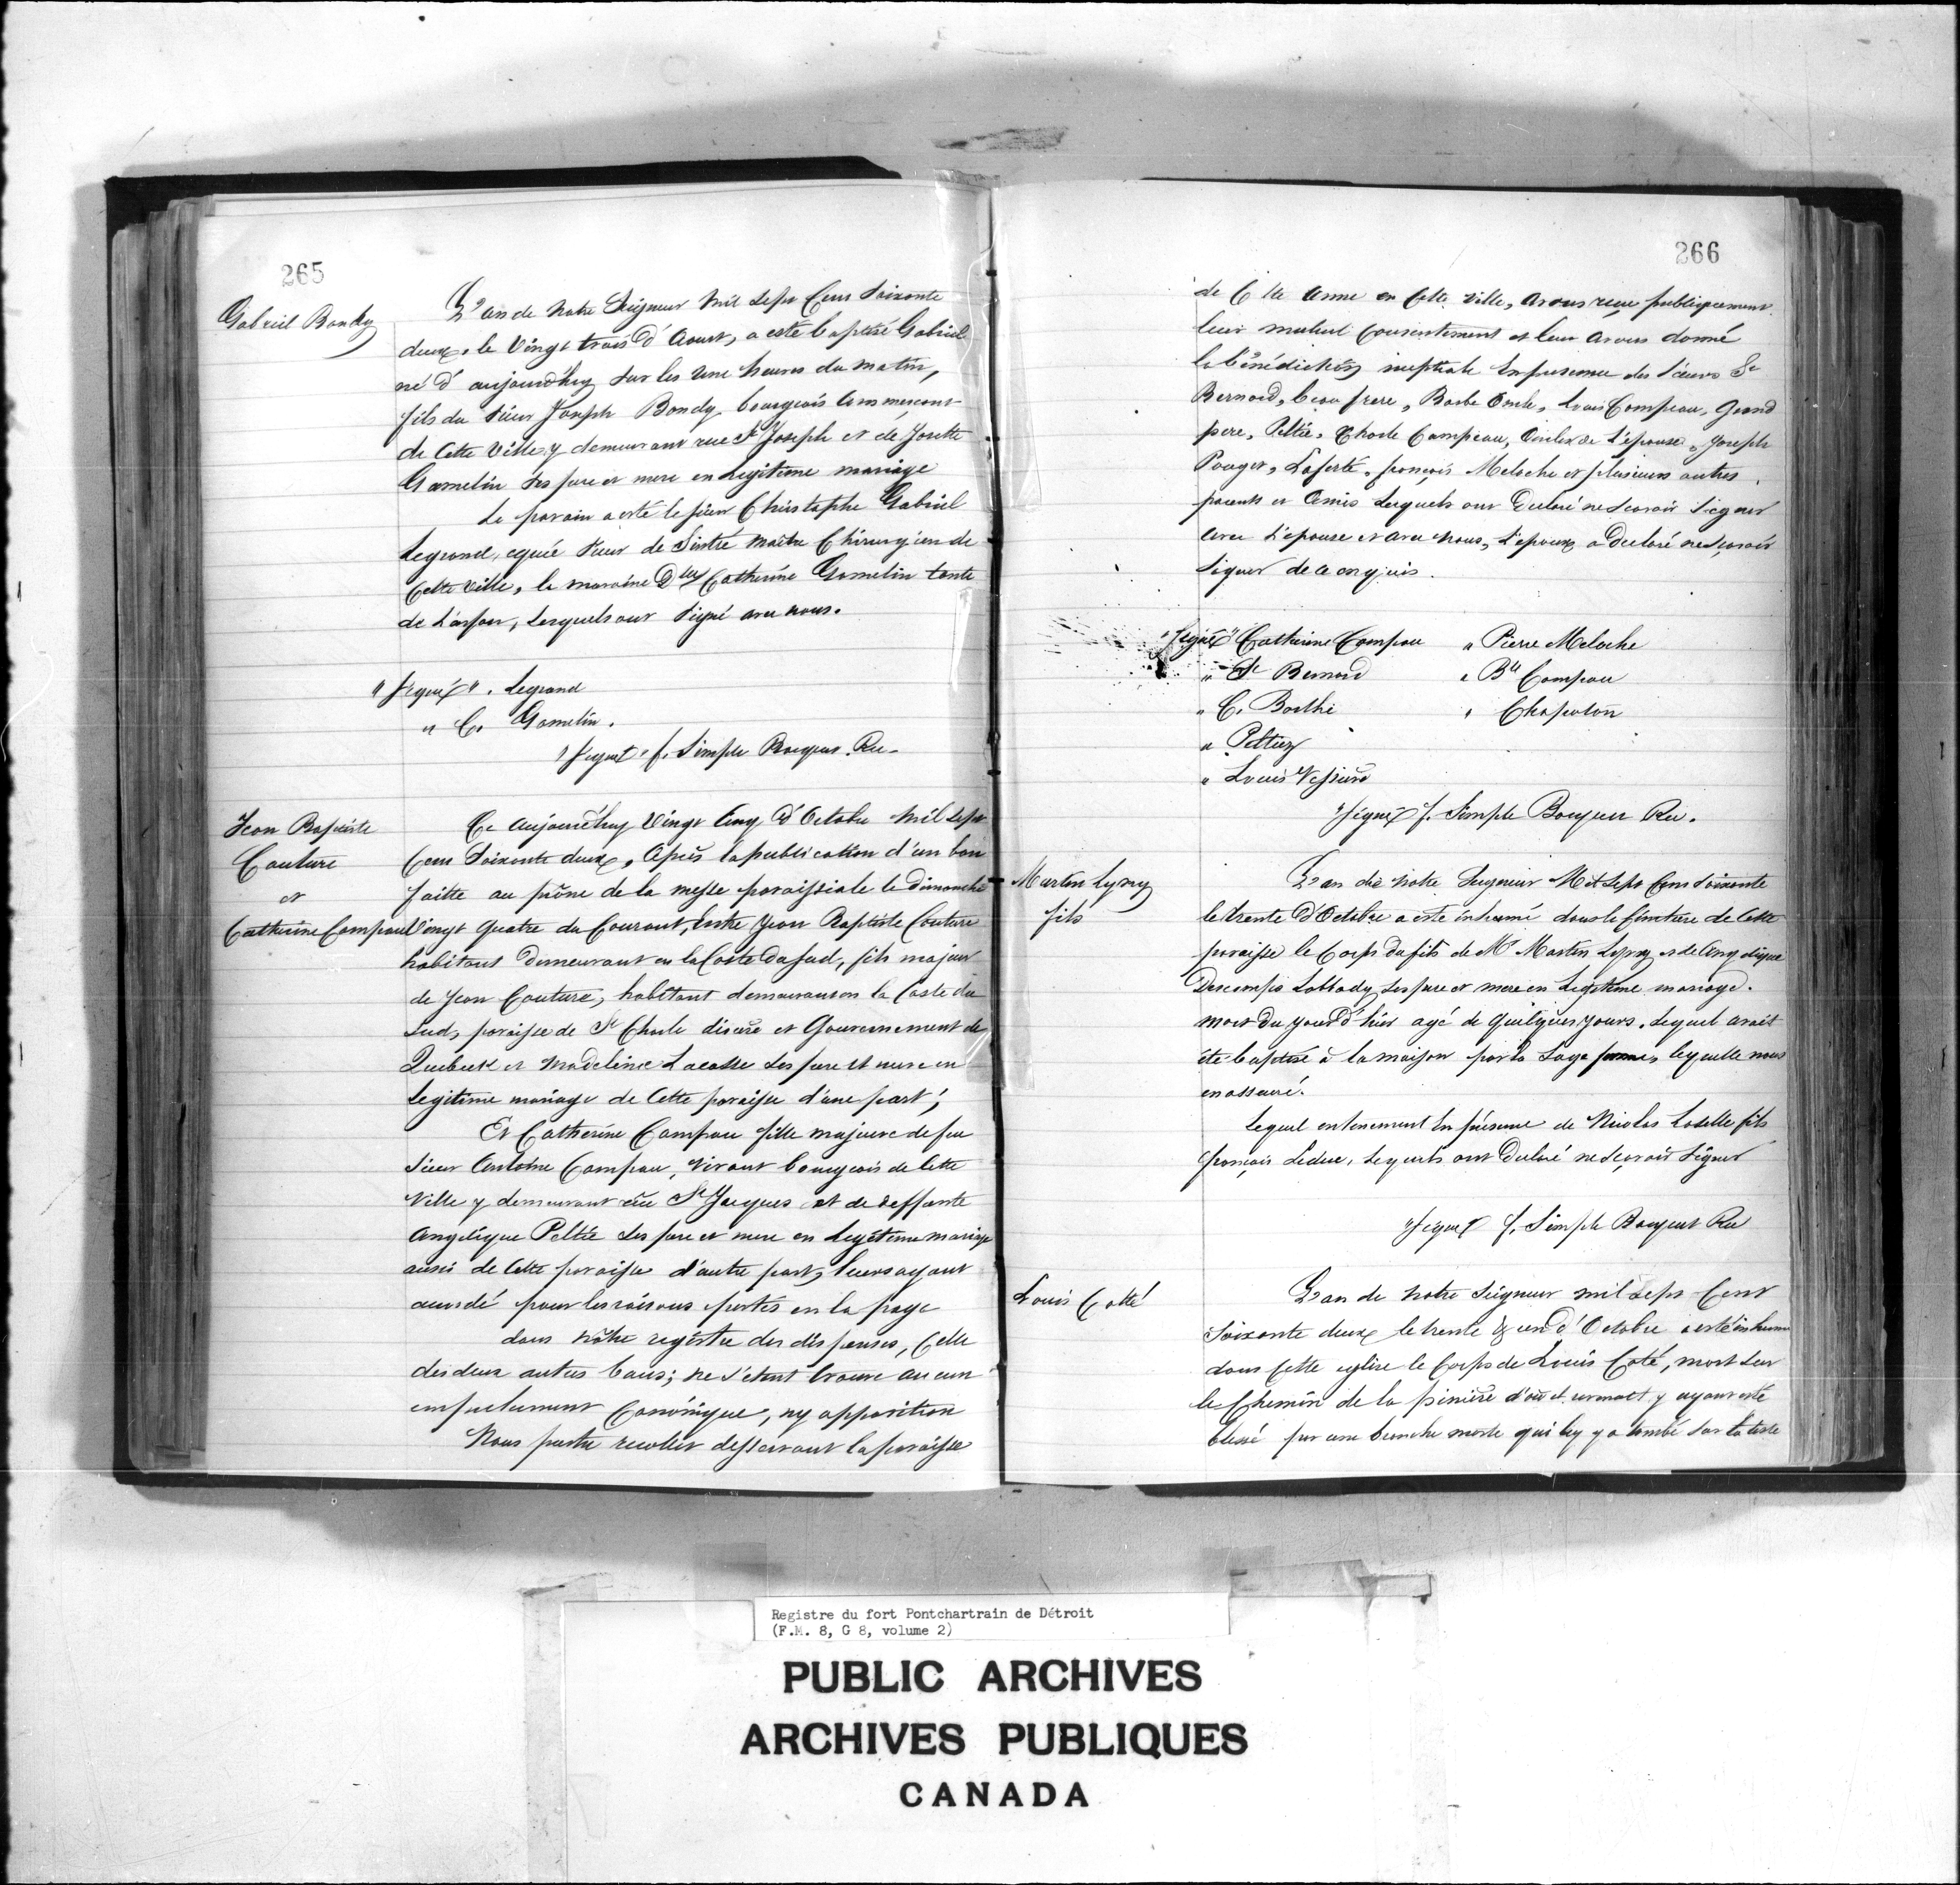 265
Gabriel Bondy
L'an de Notre Seigneur Mil Sept Cens Soixante
deux, le Vingt trois d'Aoust, a esté baptisé Gabriel
né d'aujourd'huy sur les une heures du matin,
fils du Sieur Joseph Bondy bourgeois Commerçant
de Cette Ville y demeurant rue St Joseph et de Josette
Gamelin ses pere et mere en Legitime mariage
Le parain a esté le sieur Christophe Gabriel
Legrand, Sieur de Sintré Maître Chirurgien de
Cette Ville, la maraine Dlle Catherine Gamelin tante
de L'enfan, Lesquels ont Signé avec nous.
"Signé" . Legrand
" C. Gamelin.
"Signé" f. Simple Bocquet. Rec.
Jean Baptiste
Couture
et
Catherine Campau
Ce Aujourd'huy Vingt Cinq d'Octobre Mil Sept
Cens Soixante deux, Après la publication d'un ban
faitte au prône de la messe paroissiale le Dimanche
Vingt Quatre du Courant, Entre Jean Baptiste Couture
habitant Demeurant en la Coste du Sud, fils majeur
de Jean Couture, habitant demeurant en la Coste du
Sud, paroisse de St Charle et Gouvernement de
Quebeck et Madeleine Lacasse Ses pere et mere en
Legitime mariage de Cette paroisse d'une part;
Et Catherine Campau fille majeure de feu
Sieur Antoine Campau, Vivant bourgeois de Cette
Ville y demeurant rüe St Jacques et de deffante
Angélique Peltié Ses pere et mere en Legitime mariage
aussi de Cette paroisse d'autre part, leurs ayant
accordé pour les raisons portés en la page
dans Nôtre registre des dispenses, Celle
des deux autres bans; ne s'etant trouve aucun
empechement Canônique, ny opposition
Nous pretre recollet desservant la paroisse
266
de Ste Anne en Cette Ville, avons reçue publiquement
leur mutuel Consentement et leur avons donné
la bénédiction nuptiale En presence des Sieurs St
Bernard, beau frere, Barbe Oncle, Louis Campeau, Grand
pere, Peltié, Charle Campeau, Oncles de L'épouse, Joseph
Pouget, Laferté, françois Meloche et plusieurs autres
parents et Amis Lesquels ont Declaré ne Scavoir Signer
avec L'epouse et avec Nous, L'epoux a Declaré ne Scavoir
Signer de ce enquis.
"Signé" Catherine Campau " Pierre Meloche
" St Bernard " Bte Campau
" C. Barthe " Chapoton
" Peltier
" Louis Vessiere
"Signé" f. Simple Bocquet Rec.
Martin Lyvry
fils
L'an de Notre Seigneur Mil Sept Cens Soixante
le trente d'Octobre a esté inhumé dans le Cimetiere de Cette
paroisse le Corps du fils de Mr Martin Lyvry et de Angelique
Descomps Labbady Ses pere et mere en Legitime mariage.
mort du jour d'hier agé de quelques jours, Lequel avait
été baptisé à la maison par la Sage femme, laquelle nous
en assuré.
Lequel enterrement En présence de Nicolas Laselle fils
françois Leduc, Lesquels ont Declaré ne Scavoir Signer
"Signé" f. Simple Bocquet Rec
Louis Cotté
L'an de Notre Seigneur mil Sept Cent
Soixante deux le trente & un d'Octobre a esté inhumé
dans Cette eglise le Corps de Louis Coté, mort Sur
le Chemin de la piniere d'où il y ayant esté
blessé par une branche morte qui luy y a tombé Sur la teste
Registre du fort Pontchartrain de Détroit
(F.M. 8, G 8, volume 2)
PUBLIC ARCHIVES
ARCHIVES PUBLIQUES
CANADA